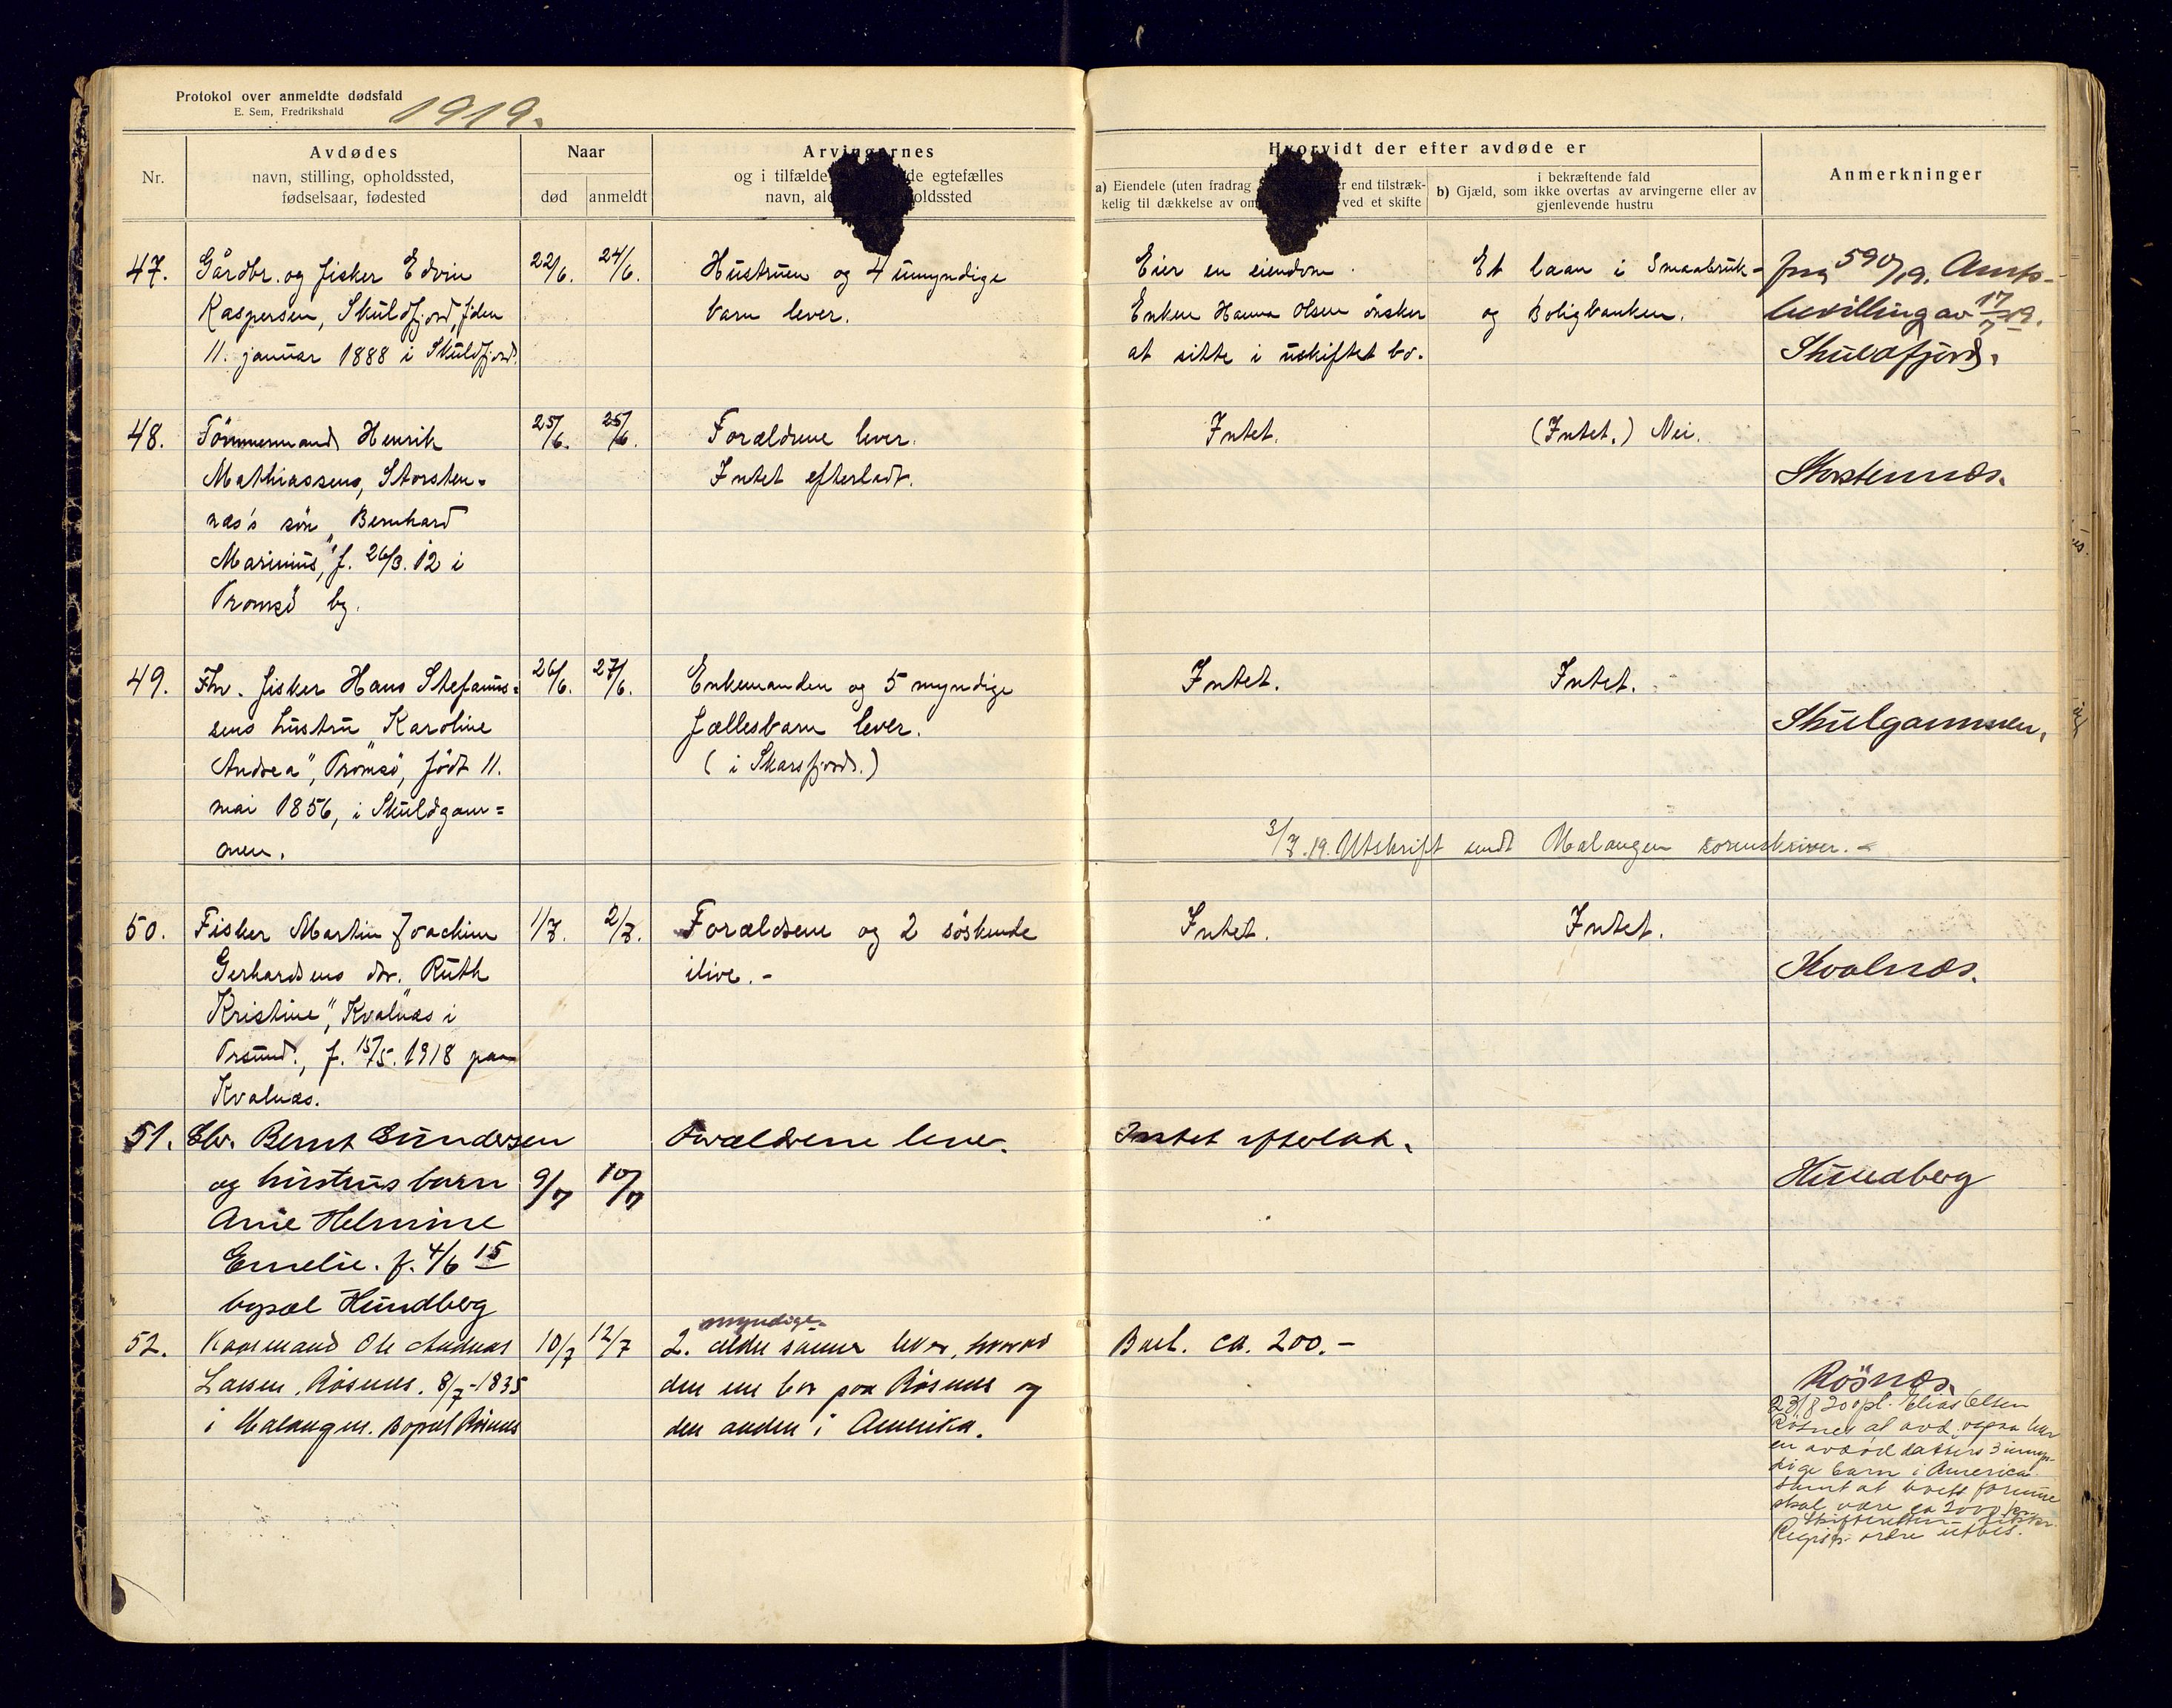 Protokol over anmeldte dødsfald
E. Sem, Fredrikshald
1919.
Nr.
Avdødes
navn, stilling, opholdssted,
fødselsaar, fødested
Naar
død
anmeldt
Arvingernes
og i tilfælde de egtefælles
navn, al oldssted
Hvorvidt der efter avdøde er
a) Eiendele (uten fradrag r end tilstræk-
kelig til dækkelse av om ved et skifte
i bekræftende fald
b) Gjæld, som ikke overtas av arvingerne eller av
gjenlevende hustru
Anmerkninger
47.
Gårdbr. og fisker Edvin
Kaspersen, Skuldfjord, föden
11. januar 1888 i Skuldfjord.
22/6.
24/6.
Hustruen og 4 umyndige
barn lever.
Eier en eiendom.
Enken Hanna Olsen önsker
at sitte i uskiftet bo.
Et laan i Smaabruk-
og Boligbanken.
590/19. Amts-
bevilling av 17/7 19.
Skuldfjord.
48.
Tömmermand Henrik
Mathiassens, Storsten-
næs's sön "Bernhard
Marinius", f. 26/3. 12 i
Tromsö by.
25/6.
25/6.
Forældrene lever.
Intet efterladt.
Intet.
(Intet.) Nei.
Storstennæs.
49.
Fhv. fisker Hans Stefanus=
sens hustru "Karoline
Andrea", Tromsö, födt 11.
mai 1856, i Skuldgam=
men.
26/6.
27/6.
Enkemanden og 5 myndige
fællesbarn lever.
(i Skarsfjord.)
Intet.
Intet.
Skulgammen.
3/7.19. Utskrift sendt Malangen sorenskriver.
50.
Fisker Martin Joachim
Gerhardsens dtr. "Ruth
Kristine", Kvalnæs i
Trsund., f. 15/5. 1918 paa
Kvalnæs.
1/7.
2/7.
Forældrene og 2 söskende
ilive.-
Intet.
Intet.
Kvalnæs.
51.
Gbr. Bernt Gundersen
og hustrus barn
Arne Helmine
Emelie. f. 4/6 15
bopæl Hundberg
9/7
10/7
Forældrene lever.
Intet efterlat.
Hundberg
52.
Kaarmand Ole Andreas
Larsen, Røsnes. 8/7-1835
i Malangen. Bopæl Røsnes
10/7
12/7
myndige
2. ældre sønner lever, hvorav
den ene bor paa Røsnes og
den anden i Amerika.
Boet. ca. 200.-
Rösnæs.
23/8 20 opl. Elias Olsen
Røsnes at avd. ogsaa har
en avdød datters 3 umyn-
dige barn i America
samt at boets formue
skal være ca 2000 kr.
ordre utbes.